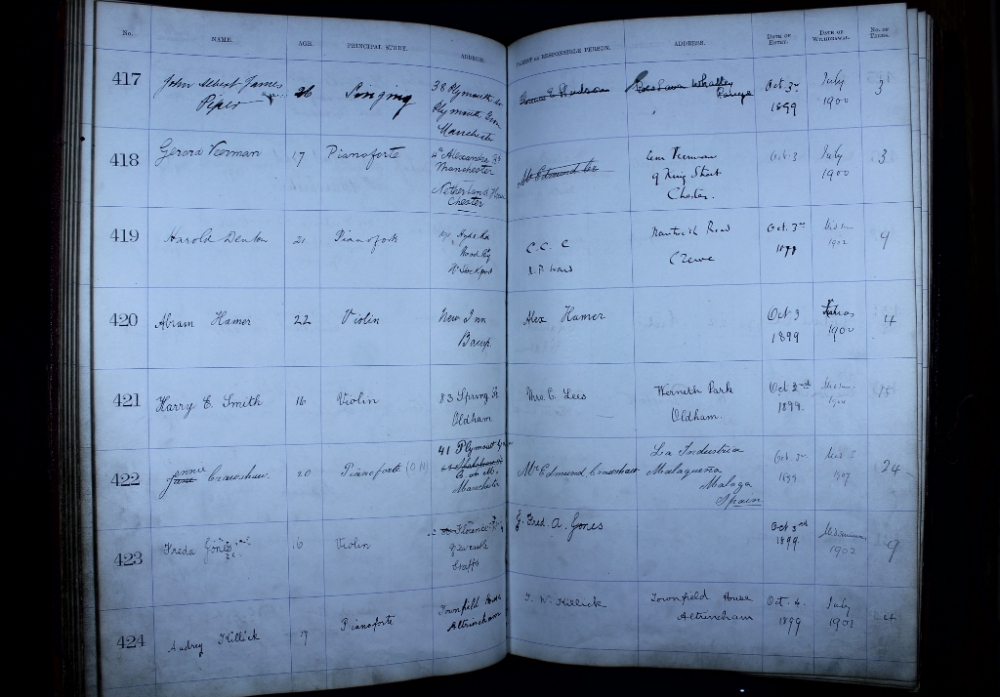 No. NAME. AGE. PRINCIPAL STUDY. ADDRESS. PARENT OR RESPONSIBLE PERSON. ADDRESS. DATE OF ENTRY. DATE OF WITHDRAWAL. NO. OF TERMS.
417 John Albert James 26 Singing 38 Plymouth Whalley Oct 3rd July 3
Piper Plymouth Grove Range 1899 1900
Manchester
418 Gerard Veerman 17 Pianoforte Alexandra Veerman Oct 3 July 3
Manchester Mr Edmund 9 King Street 1900
Netherlands House Chester.
Chester
419 Harold Denton 21 Pianoforte Hyde Rd C. C. C Nantwich Road Oct. 3rd 9
Woodley Ward Crewe 1899 1902
Nr Stockport
420 Abram Hamer 22 Violin New Inn Alex Hamer Oct 3 Xmas 4
Bacup 1899 1900
421 Harry E. Smith 16 Violin 83 Spring St Mrs. C. Lees Werneth Park Oct 3rd
Oldham Oldham. 1899.
422 Annie Crawshaw 20 Pianoforte 41 Plymouth Mr Edmund Crawshaw La Industria Oct. 3rd 24
Jane C on M. Malagueña 1899
Manchester Malaga
Spain
423 Freda Jones 16 Violin Florence G. Fred. A. Jones Oct 3rd Midsummer 9
Newcastle 1899 1902
Staffs
424 Audrey Killick 19 Pianoforte Townfield House T. W. Killick Townfield House Oct. 4. July
Altrincham Altrincham 1899